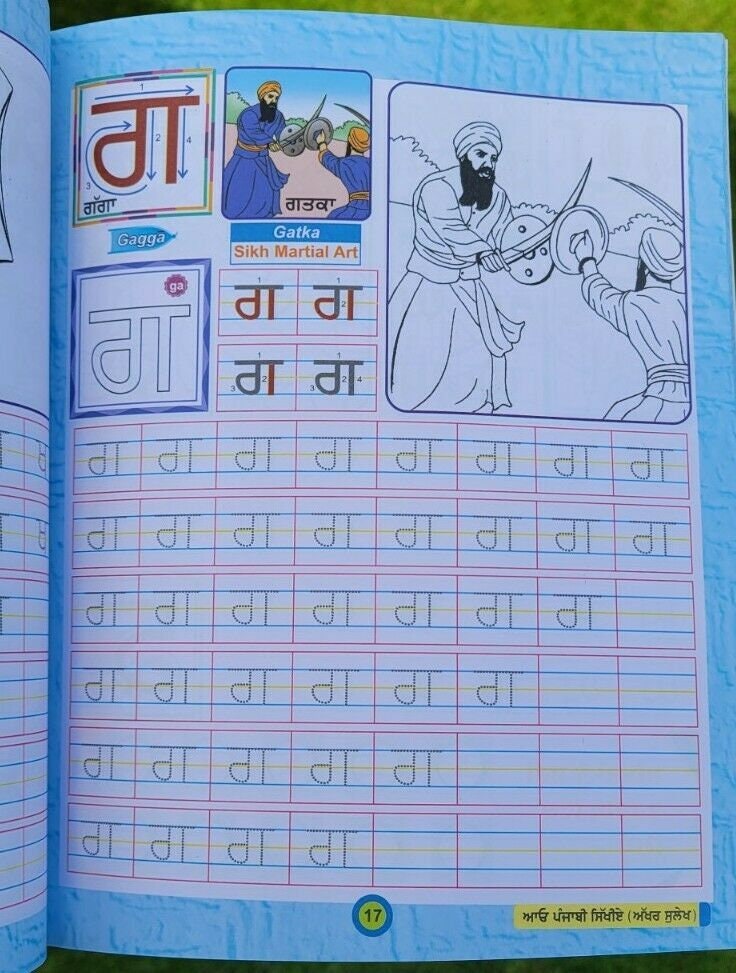 1
ਗ
2
4
3
ਗੱਗਾ
Gagga
ਗਤਕਾ
Gatka
Sikh Martial Art
ga
ਗ
1
ਗ
1
2
ਗ
1
2
3
ਗ
1
2
3
4
ਗ
ਗ ਗ ਗ ਗ ਗ ਗ ਗ ਗ
ਗ ਗ ਗ ਗ ਗ ਗ ਗ ਗ
ਗ ਗ ਗ ਗ ਗ ਗ ਗ
ਗ ਗ ਗ ਗ ਗ ਗ
ਗ ਗ ਗ ਗ ਗ
ਗ ਗ ਗ ਗ
17
ਆਓ ਪੰਜਾਬੀ ਸਿੱਖੀਏ (ਅੱਖਰ ਸੁਲੇਖ)